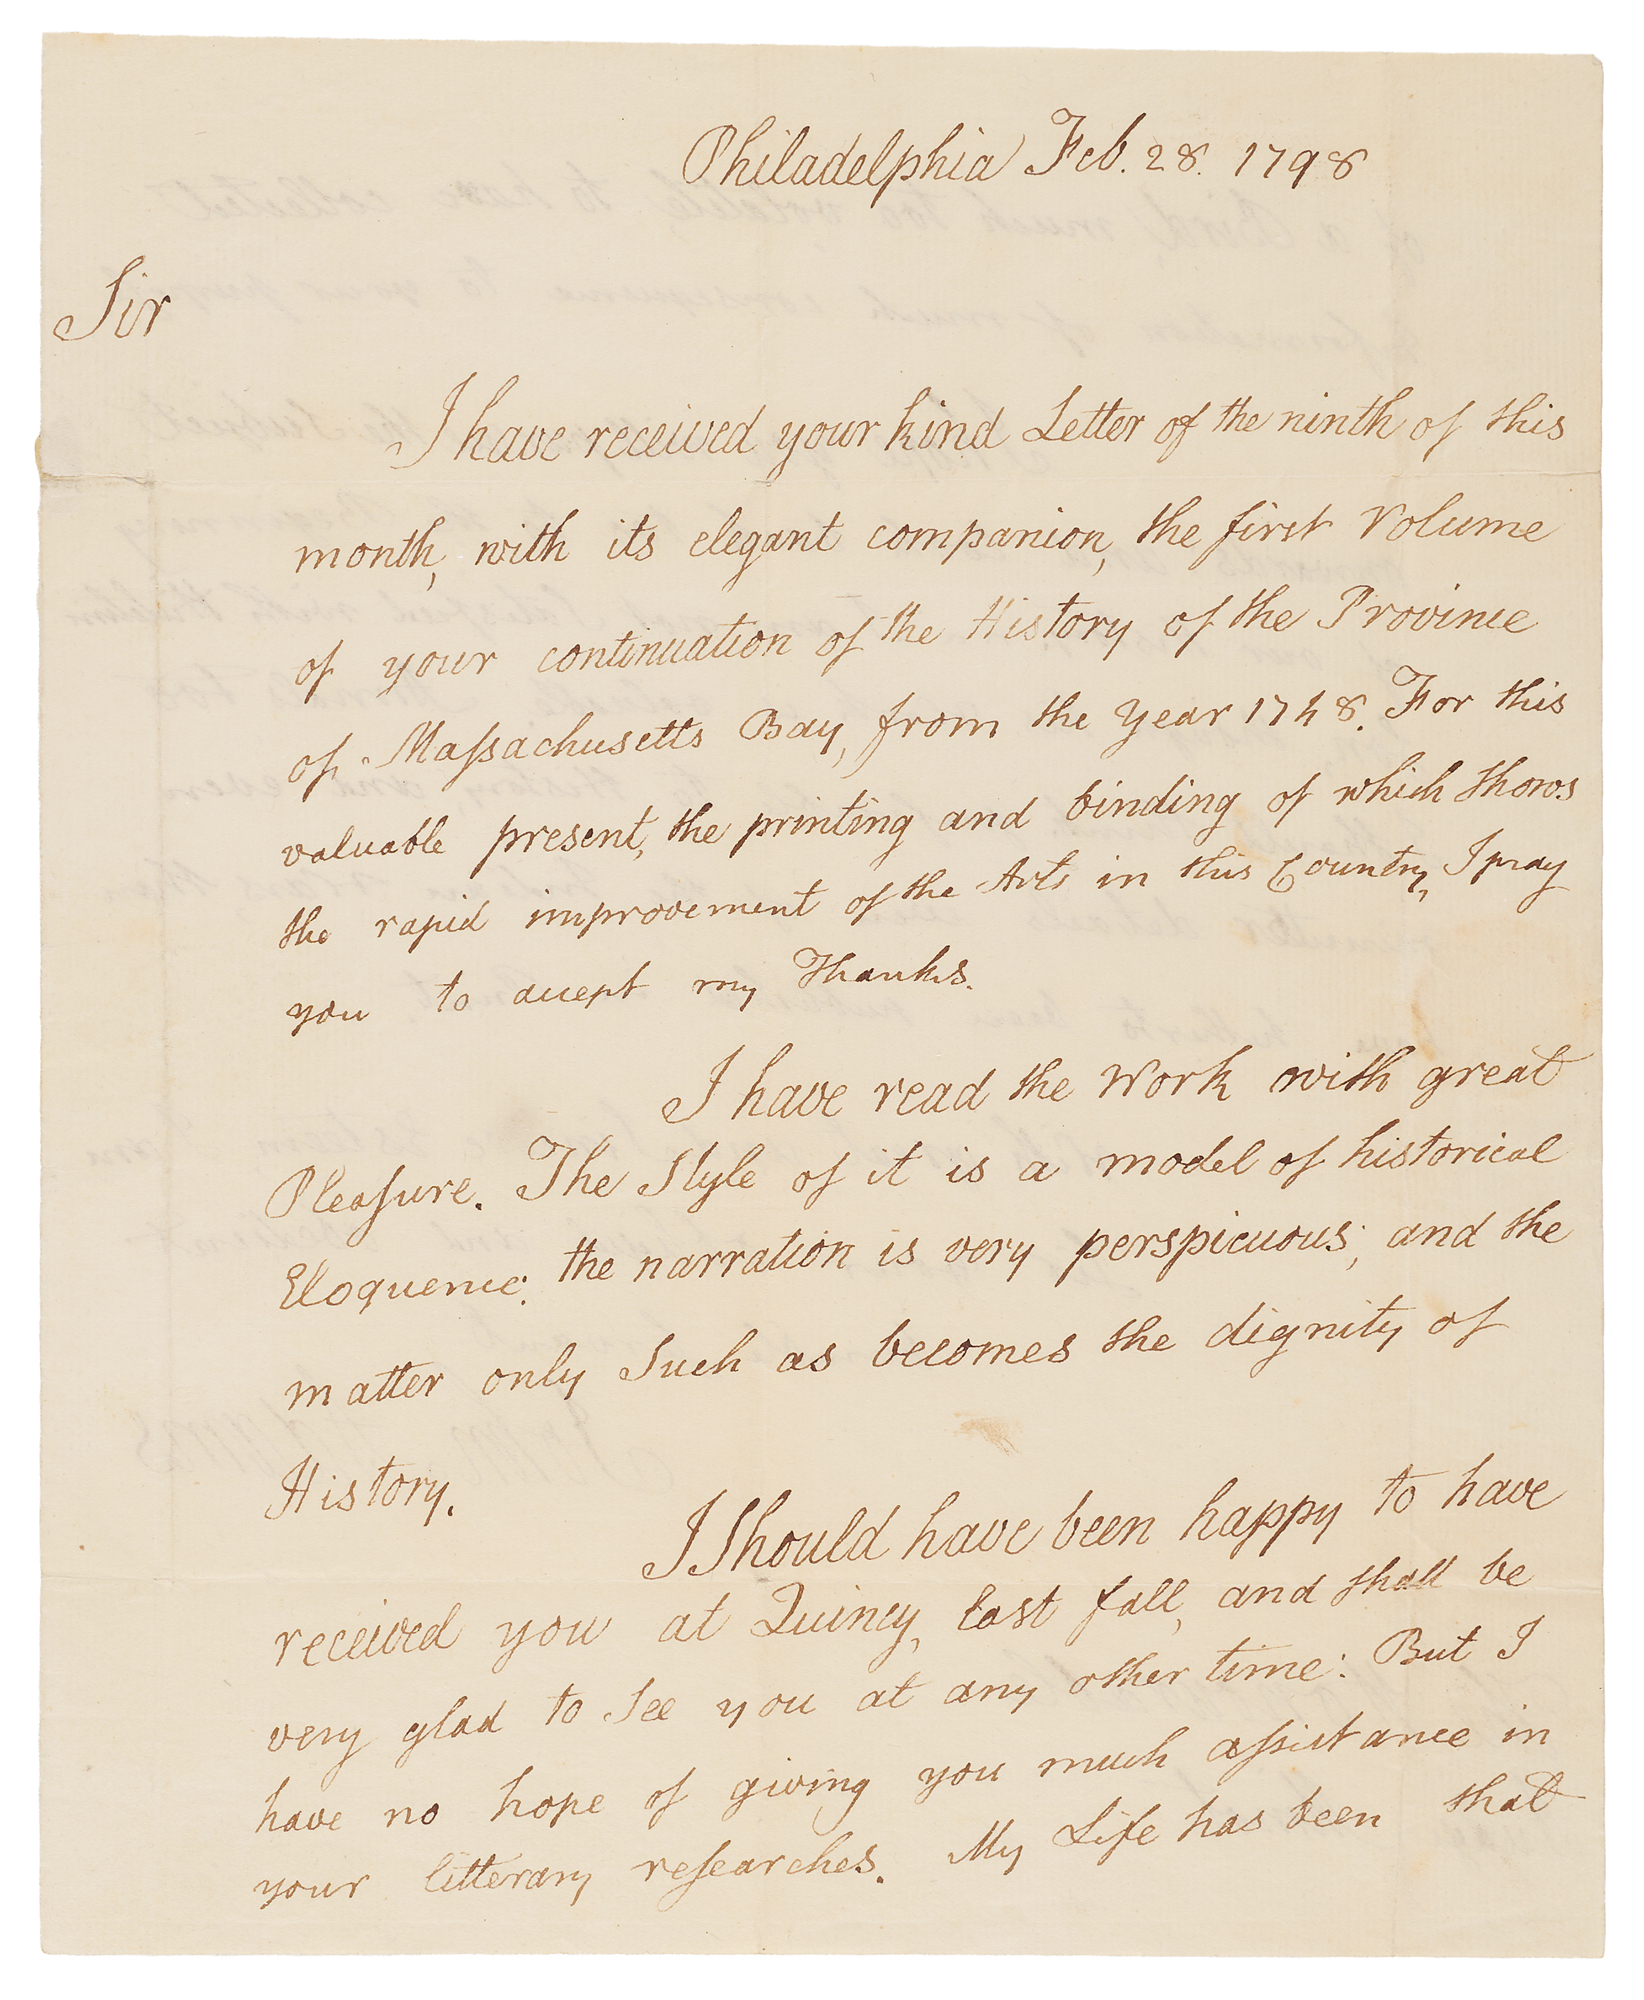 Philadelphia Feb. 28. 1798
Sir
I have received your kind Letter of the ninth of this
month, with its elegant companion, the first Volume
of your continuation of the History of the Province
of Maſsachusetts Bay, from the Year 1748. For this
valuable present, the printing and binding of which shows
the rapid improvement of the Arts in this Country, I pray
you to accept my Thanks.
I have read the Work with great
Pleaſure. The Style of it is a model of historical
Eloquence: the narration is very perspicuous; and the
matter only Such as becomes the dignity of
History.
I Should have been happy to have
received you at Quincy, last fall, and shall be
very glad to See you at any other time: But I
have no hope of giving you much aſsistance in
your litterary reſearches. My Life has been that